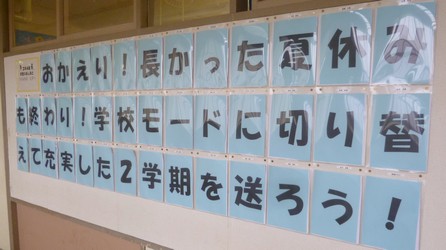 おかえり!長かった夏休み
も終わり!学校モードに切り替
えて充実した2学期を送ろう!